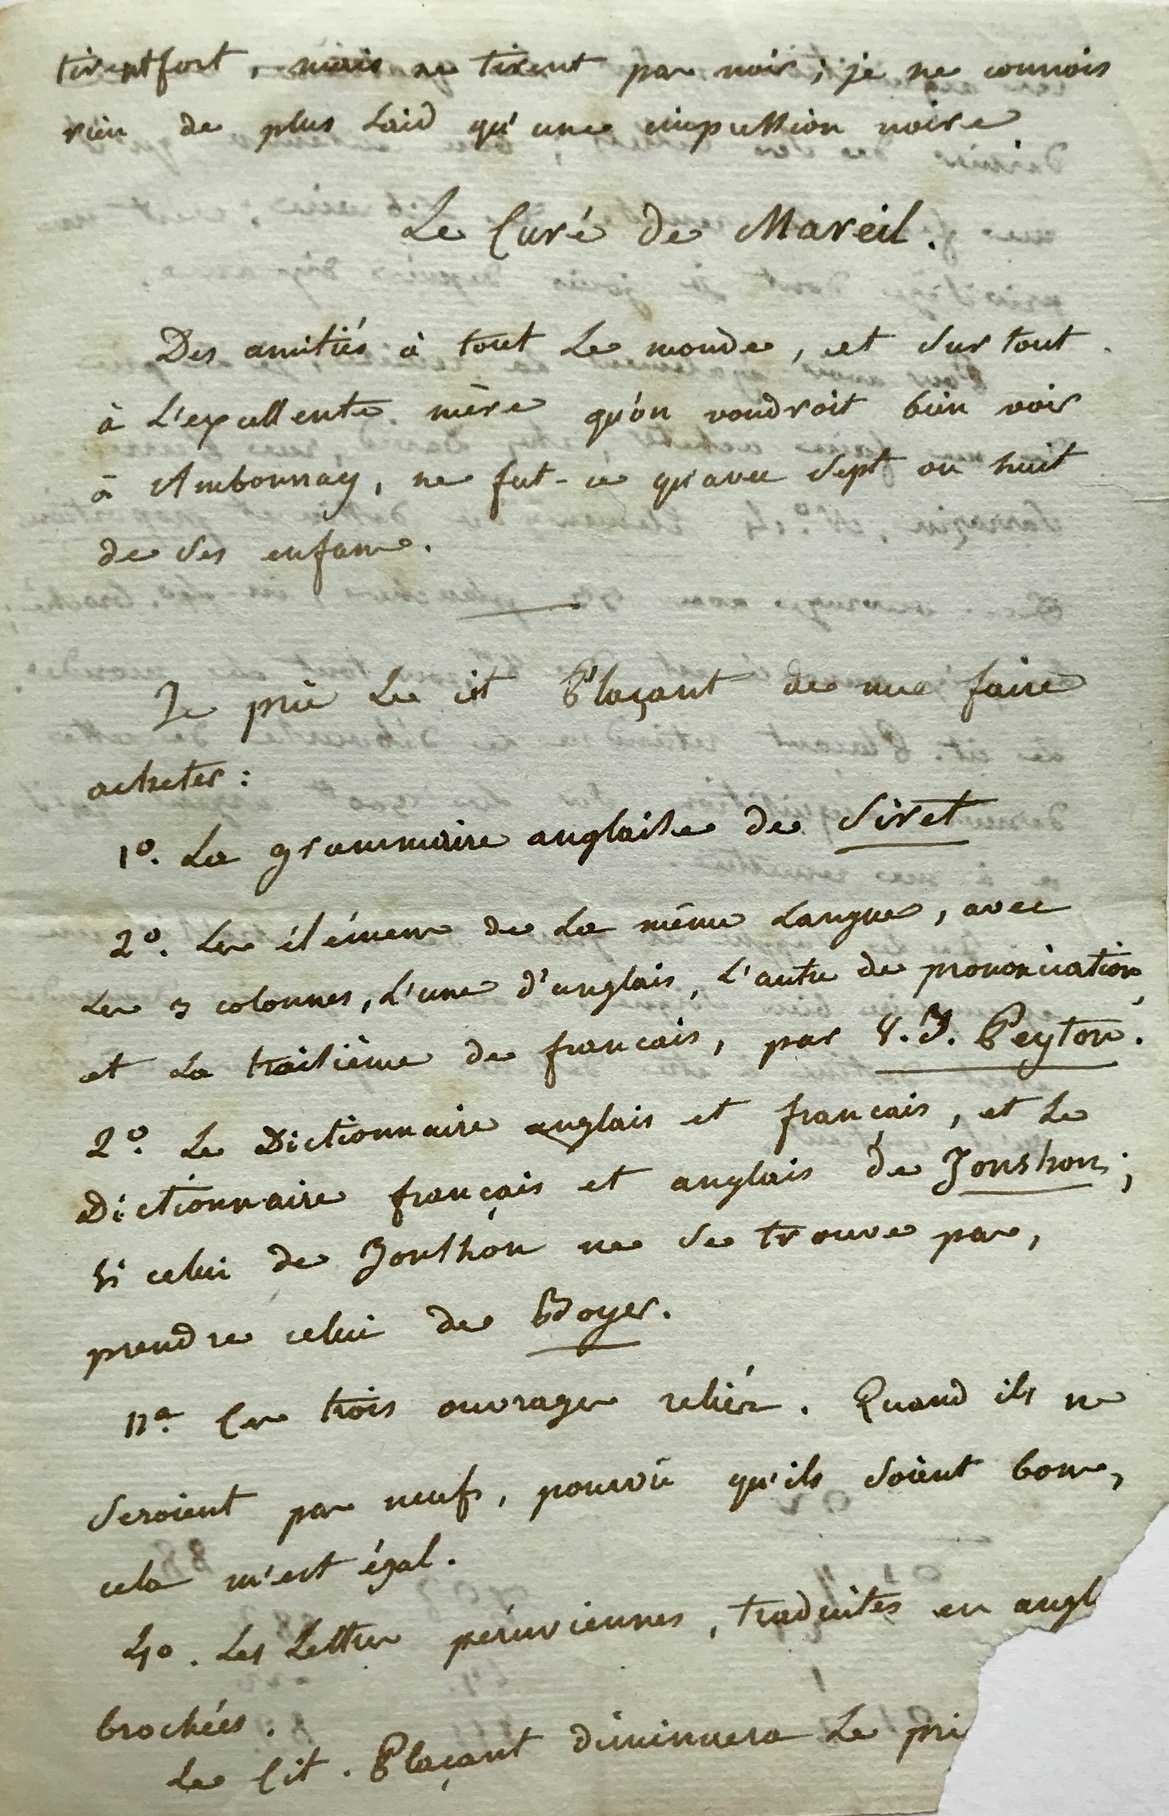 tirent fort, mais ne tirent pas noir; je ne connois
rien de plus laid qu'une impression noire
Le Curé de Mareil.
Des amitiés à tout le monde, et sur tout
à l'excellente mère qu'on voudroit bien voir
à Ambonnay, ne fut-ce qu'avec sept ou huit
de ses enfans.
Je prie le cit Plaçant de me faire
acheter:
1º. La grammaire anglaise de Siret
2º. Les élémens de la même langue, avec
les 3 colonnes, l'une d'anglais, l'autre de prononciation,
et la troisième de francais, par V. J. Peyton.
2º. Le Dictionnaire anglais et français, et le
Dictionnaire français et anglais de Jonshon;
si celui de Jonshon ne se trouve pas,
prendre celui de Boyer.
Nª Ces trois ouvrages reliés. Quand ils ne
seroient pas neufs, pourvû qu'ils soient bons,
cela m'est égal.
4º. Les Lettres péruviennes, traduites en angl
brochées.
Le Cit. Plaçant diminuera le pri